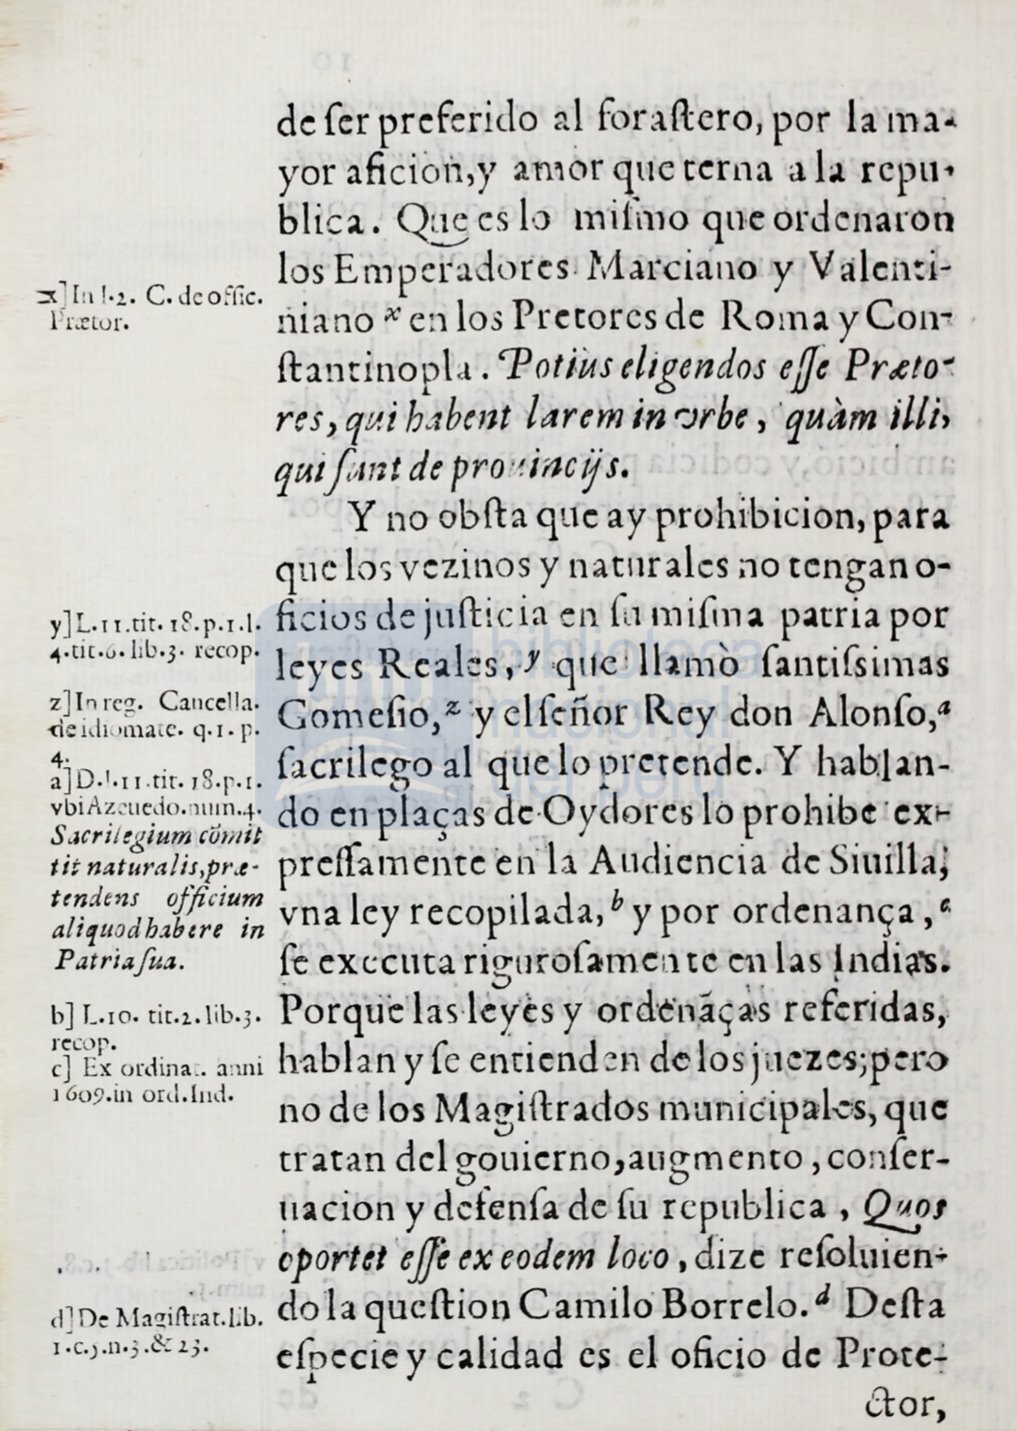 de ſer preferido al foraſtero, por la ma-
yor aficion, y amor que terna a la repu-
blica. Que es lo miſmo que ordenaron
los Emperadores Marciano y Valenti-
niano x en los Pretores de Roma y Con-
ſtantinopla. Potiùs eligendos eſſe Præto-
res, qui habent larem in vrbe, quàm illi,
qui ſunt de prouincijs.
Y no obſta que ay prohibicion, para
que los vezinos y naturales no tengan o-
ficios de juſticia en ſu miſma patria por
leyes Reales, y que llamò ſantiſsimas
Gomeſio, z y el ſeñor Rey don Alonſo, a
ſacrilego al que lo pretende. Y hablan-
do en plaças de Oydores lo prohibe ex-
preſſamente en la Audiencia de Siuilla,
vna ley recopilada, b y por ordenança, c
ſe executa riguroſamente en las Indias.
Porque las leyes y ordenāças referidas,
hablan y ſe entienden de los juezes; pero
no de los Magiſtrados municipales, que
tratan del gouierno, augmento, conſer-
uacion y defenſa de ſu republica, Quos
oportet eſſe ex eodem loco, dize reſoluien-
do la queſtion Camilo Borrelo. d Deſta
eſpecie y calidad es el oficio de Prote-
ctor,
x] In l. 2. C. de offic.
Prætor.
y] L. 11. tit. 18. p. 1. l.
4. tit. 6. lib. 3. recop.
z] In reg. Cancella.
de idiomate. q. 1. p.
4.
a] D. l. 11. tit. 18. p. 1.
vbi Azeuedo. num. 4.
Sacrilegium cōmit
tit naturalis, præ-
tendens officium
aliquod habere in
Patria ſua.
b] L. 10. tit. 2. lib. 3.
recop.
c] Ex ordinat. anni
1609. in ord. Ind.
d] De Magiſtrat. lib.
1. c. 3. n. 3. & 23.
biblioteca
nacional
del perú